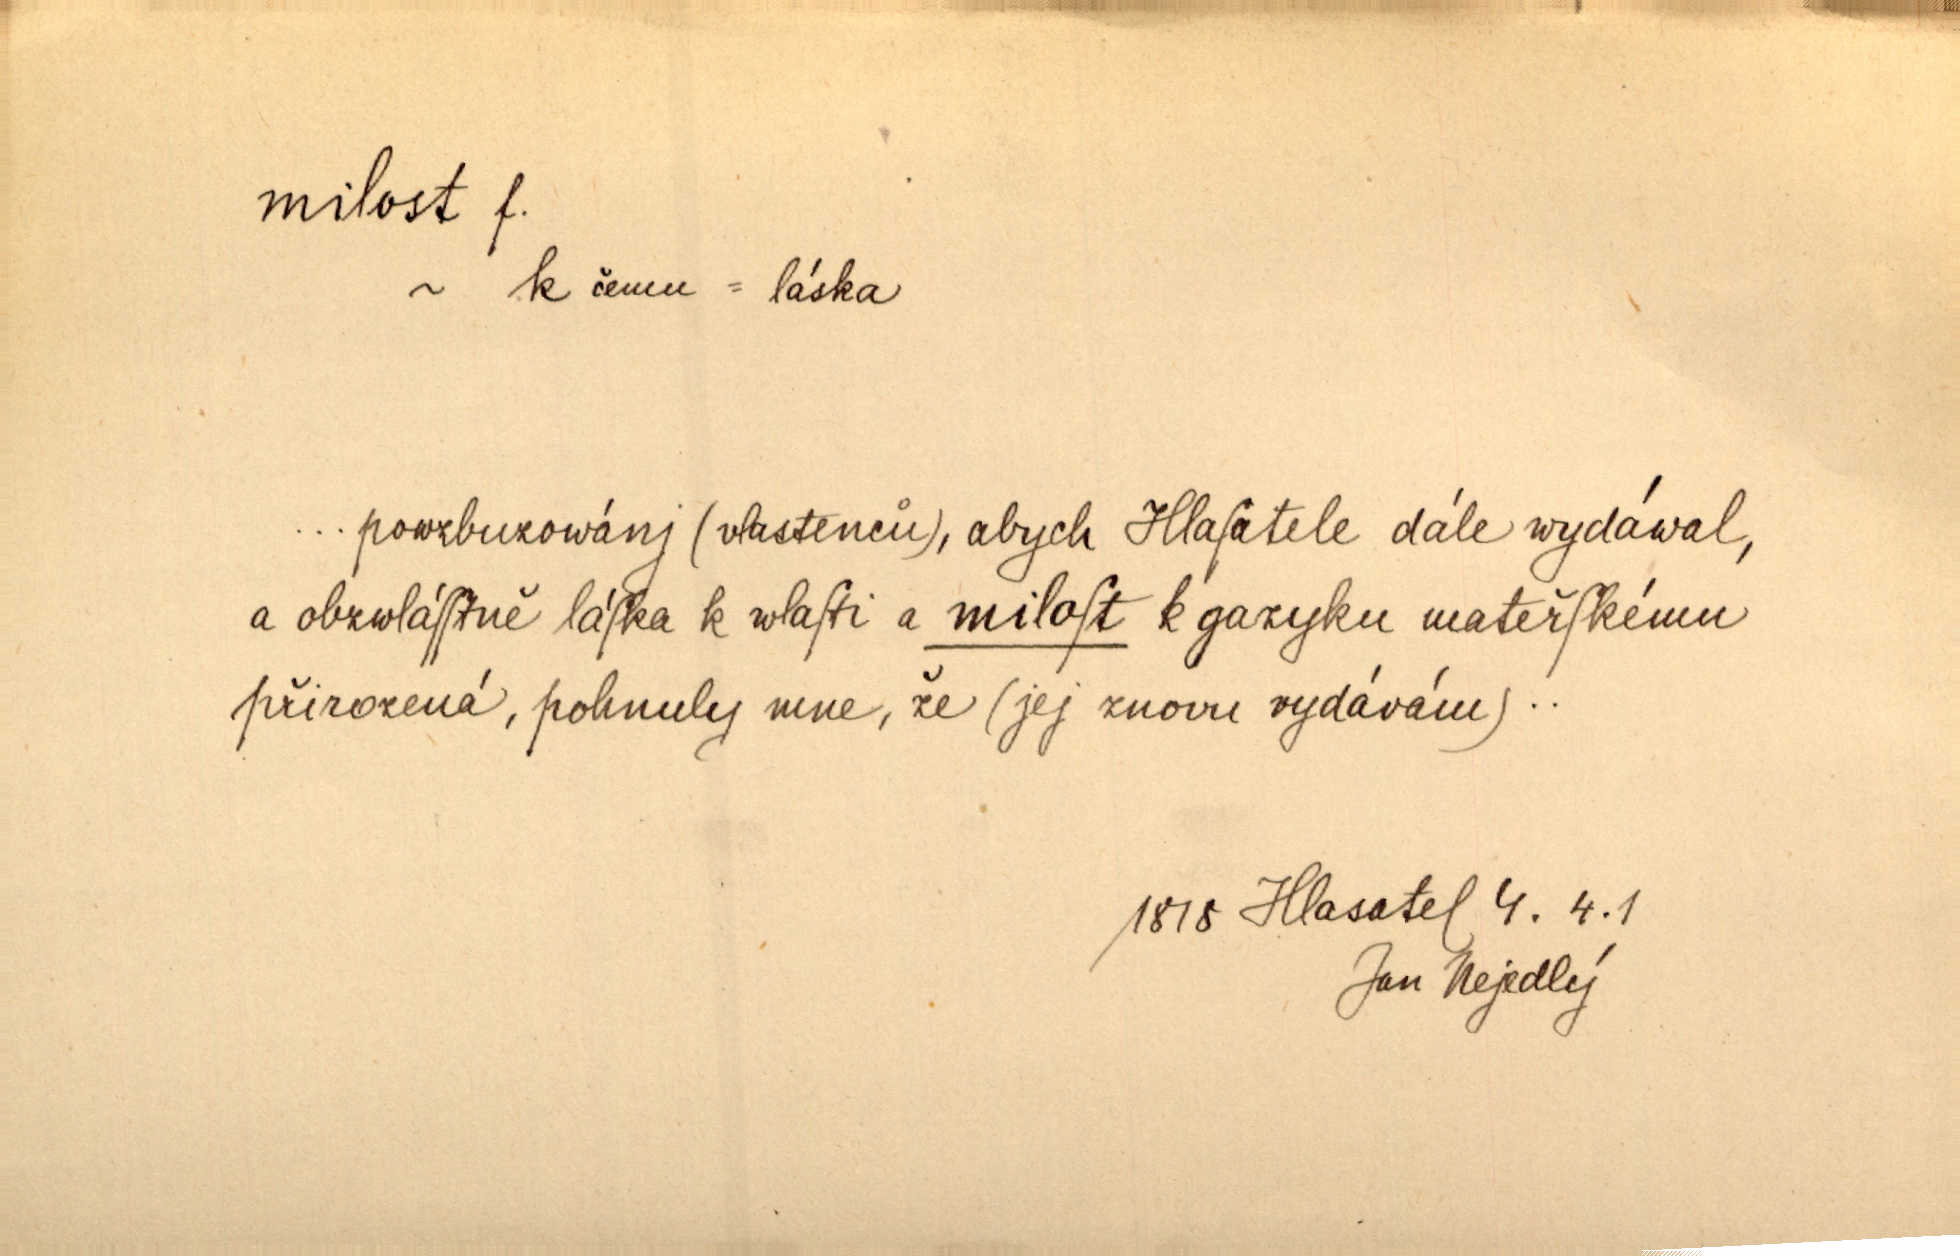 milost f.
~ k čemu = láska
... powzbuzowánj (vlastenců), abych Hlaſatele dále wydáwal,
a obzwláſſtně láſka k wlaſti a miloſt k gazyku mateřſkému
přirozená, pohnuly mne, že (jej znovu vydávám) ..
1818 Hlasatel 4. 4.1
Jan Nejedlý